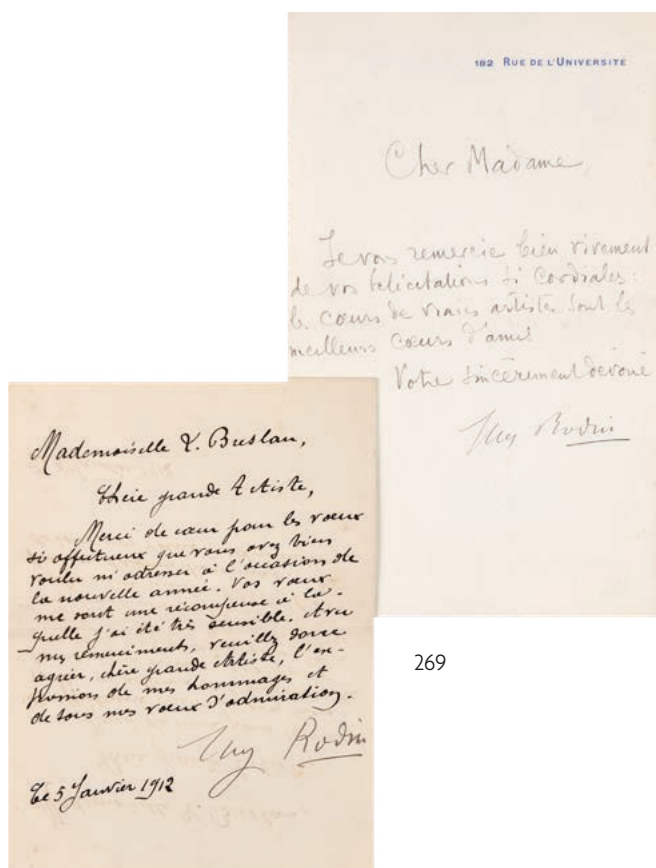 182 RUE DE L'UNIVERSITE
Cher Madame,
Je vous remercie bien vivement
de vos felicitations si Cordiales:
les cœurs de vraies artistes sont les
meilleurs cœurs d'amis
Votre sincèrement devoué
Aug Rodin
Mademoiselle L. Breslau,
Chère grande Artiste,
Merci de cœur pour les vœux
si affectueux que vous avez bien
voulu m'adresser à l'occasion de
la nouvelle année. Vos vœux
me sont une récompense à la-
quelle j'ai été très sensible. Avec
mes remerciments, veuillez donc
agréer, chère grande Artiste, l'ex-
pression de mes hommages et
de tous mes vœux d'admiration.
Aug Rodin
Le 5 Janvier 1912
269